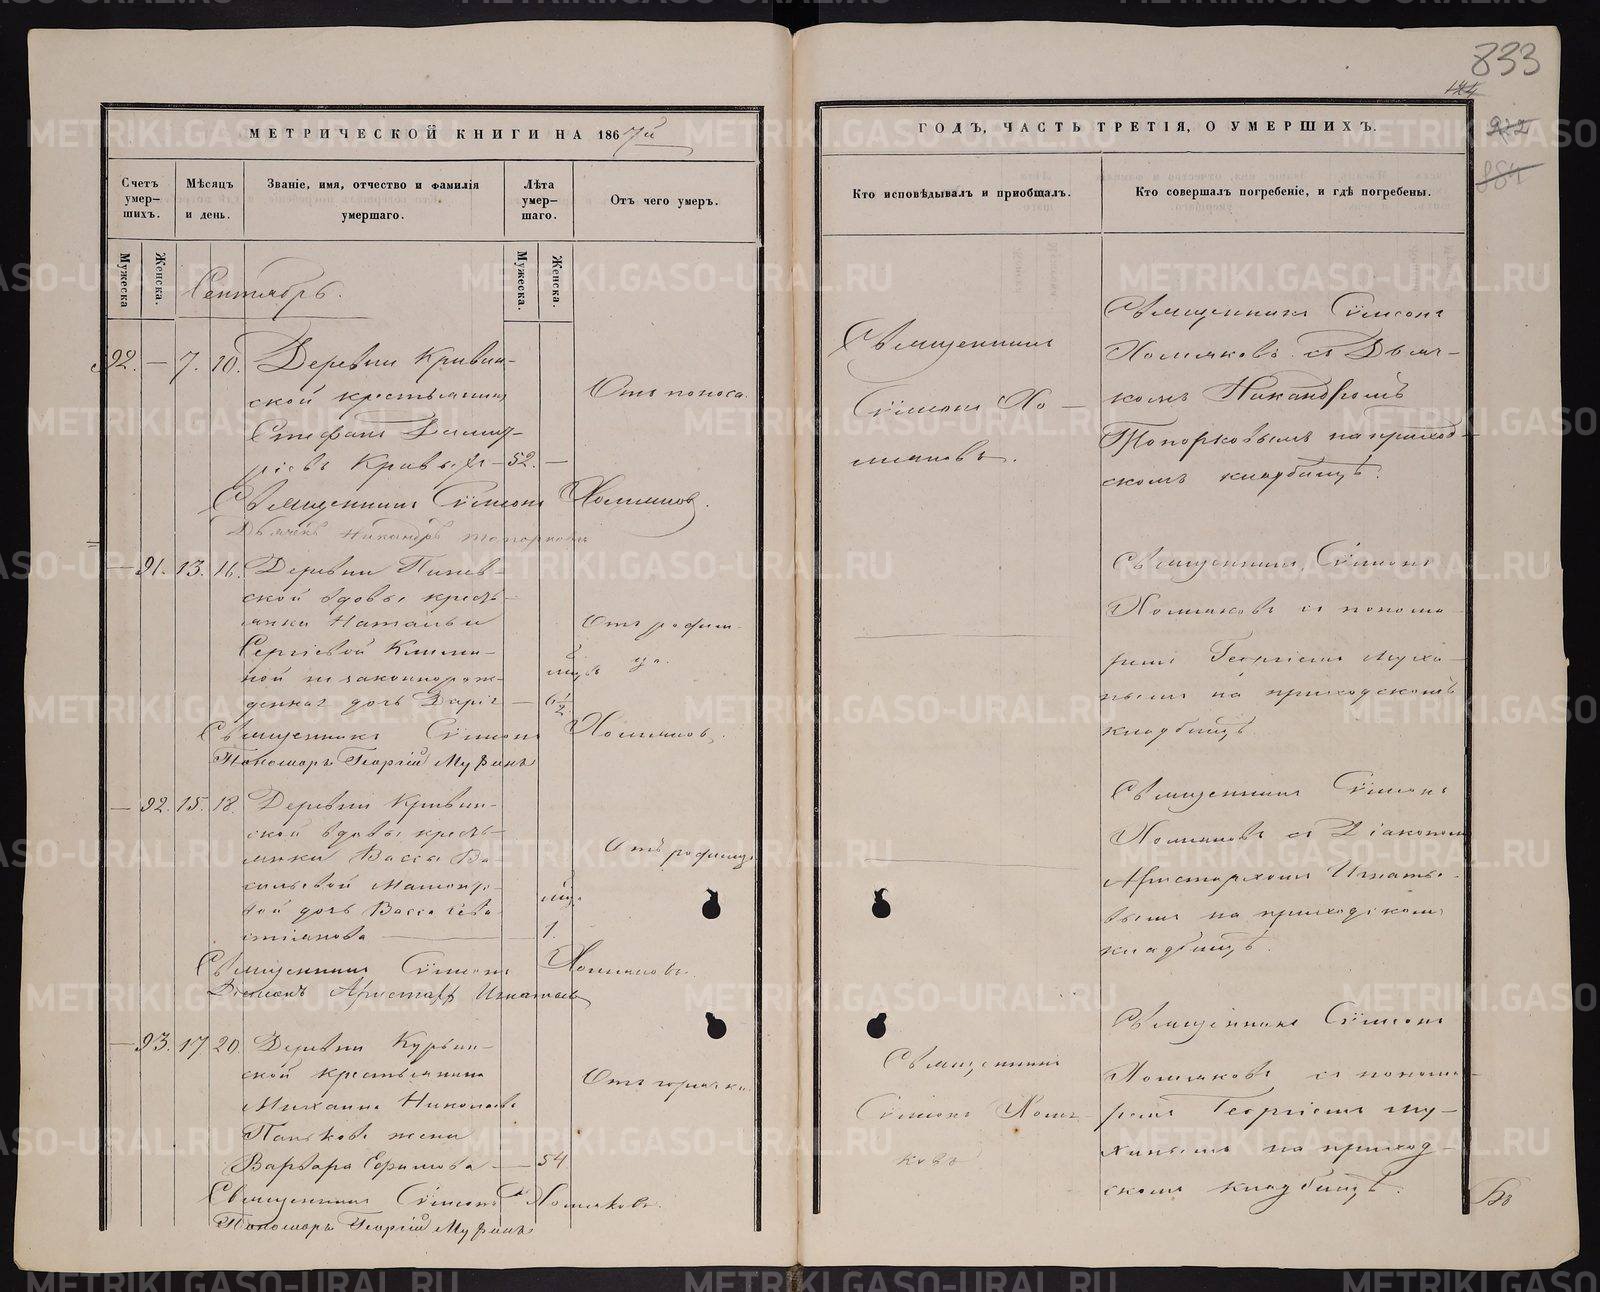 833
МЕТРИЧЕСКОЙ КНИГИ НА 1867й
Счетъ умер-шихъ.
Мѣсяцъ и день.
Званіе, имя, отчество и фамилія умершаго.
Лѣта умер-шаго.
Отъ чего умеръ.
Мужеска
Женска.
Мужеска.
Женска.
Сентябрь.
92. — 7. 10. Деревни Кривин-
ской крестьянинъ
Стефанъ Димит-
ріевъ Кривыхъ — 52. —
Отъ поноса.
Священникъ Сѵмеонъ Холмяковъ.
Дьячекъ Никандръ Топорковъ
— 91. 13. 16. Деревни
ской вдовы кресть-
янки Натальи
Сергіевой
ной незаконнорож-
денная дочь Дарія —
мцъ
6 1/2
Отъ родим-
ца.
Священникъ Сѵмеонъ Холмяковъ.
Пономарь Георгій Мухинъ
— 92. 15. 18. Деревни Кривин-
ской вдовы кресть-
янки Вассы Ва-
сильевой
вой дочь Васса Сева-
стіанова
мцъ
1.
Отъ родимца
Священникъ Сѵмеонъ Холмяковъ.
Діаконъ Аристархъ Игнатьевъ
— 93. 17 20 Деревни Курьин-
ской крестьянина
Михаила Николаева
Панькова жена
Варвара Ефимова — 54
Отъ горячки
Священникъ Сѵмеонъ Холмяковъ.
Пономарь Георгій Мухинъ
ГОДЪ, ЧАСТЬ ТРЕТІЯ, О УМЕРШИХЪ.
Кто исповѣдывалъ и пріобщалъ.
Кто совершалъ погребеніе, и гдѣ погребены.
Священникъ
Сѵмеонъ Хо-
лмяковъ.
Священникъ Сѵмеонъ
Холмяковъ съ Дьяч-
комъ Никандромъ
Топорковымъ на приход-
скомъ кладбищѣ.
Священникъ Сѵмеонъ
Холмяковъ съ понома-
ремъ Георгіемъ Мухи-
нымъ на приходскомъ
кладбищѣ
Священникъ Сѵмеонъ
Холмяковъ съ Діакономъ
Аристархомъ Игнатье-
вымъ на приходскомъ
кладбищѣ.
Священникъ
Сѵмеонъ Холмя-
ковъ
Священникъ Сѵмеонъ
Холмяковъ съ понома-
ремъ Георгіемъ Му-
хинымъ на приход-
скомъ кладбищѣ.
METRIKI.GASO-URAL.RU